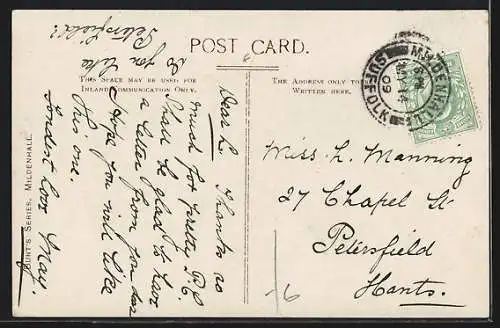 POST CARD.
THIS SPACE MAY BE USED FOR
INLAND COMMUNICATION ONLY.
THE ADDRESS ONLY TO
WRITTEN HERE.
MILDENHALL
SUFFOLK
09
Dear L. Thanks so
much for pretty P.C.
Shall be glad to have
a letter from you dear
Hope you will like
this one.
Fondest Love May.
Do you like
Petersfield?
Miss L. Manning
27 Chapel St
Petersfield
Hants.
-/6
BURT'S SERIES, MILDENHALL.